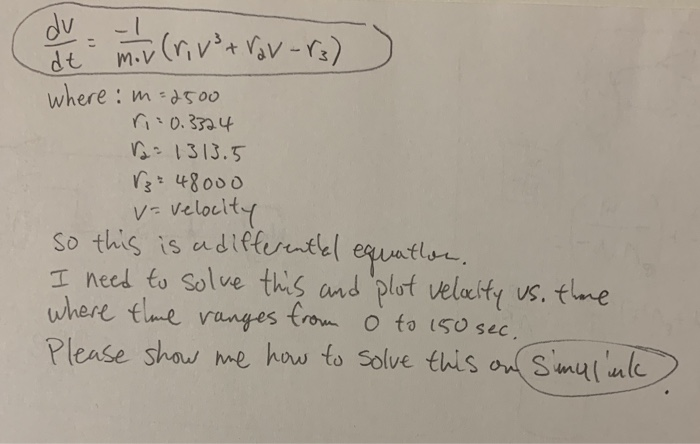 dv/dt = -1/m·v (r₁v³ + r₂v - r₃)
where : m = 2500
r₁ = 0.3324
r₂ = 1313.5
r₃ = 48000
v = velocity
So this is a differential equation.
I need to solve this and plot velocity vs. time
where time ranges from 0 to 150 sec.
Please show me how to solve this on Simulink.